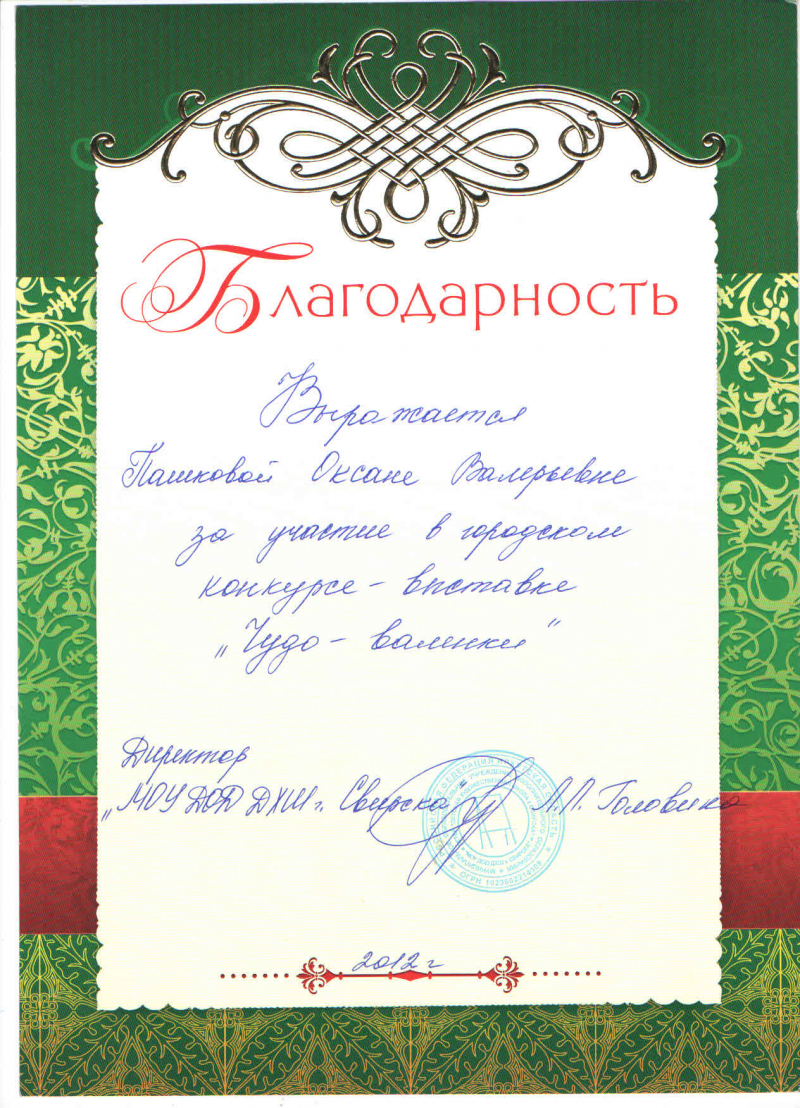 Благодарность
Выражается
Пашковой Оксане Валерьевне
за участие в городском
конкурсе - выставке
„Чудо - валенки"
Директор
„МОУ ДОД ДХШ г. Свирска" Л.П. Головина
2012 г